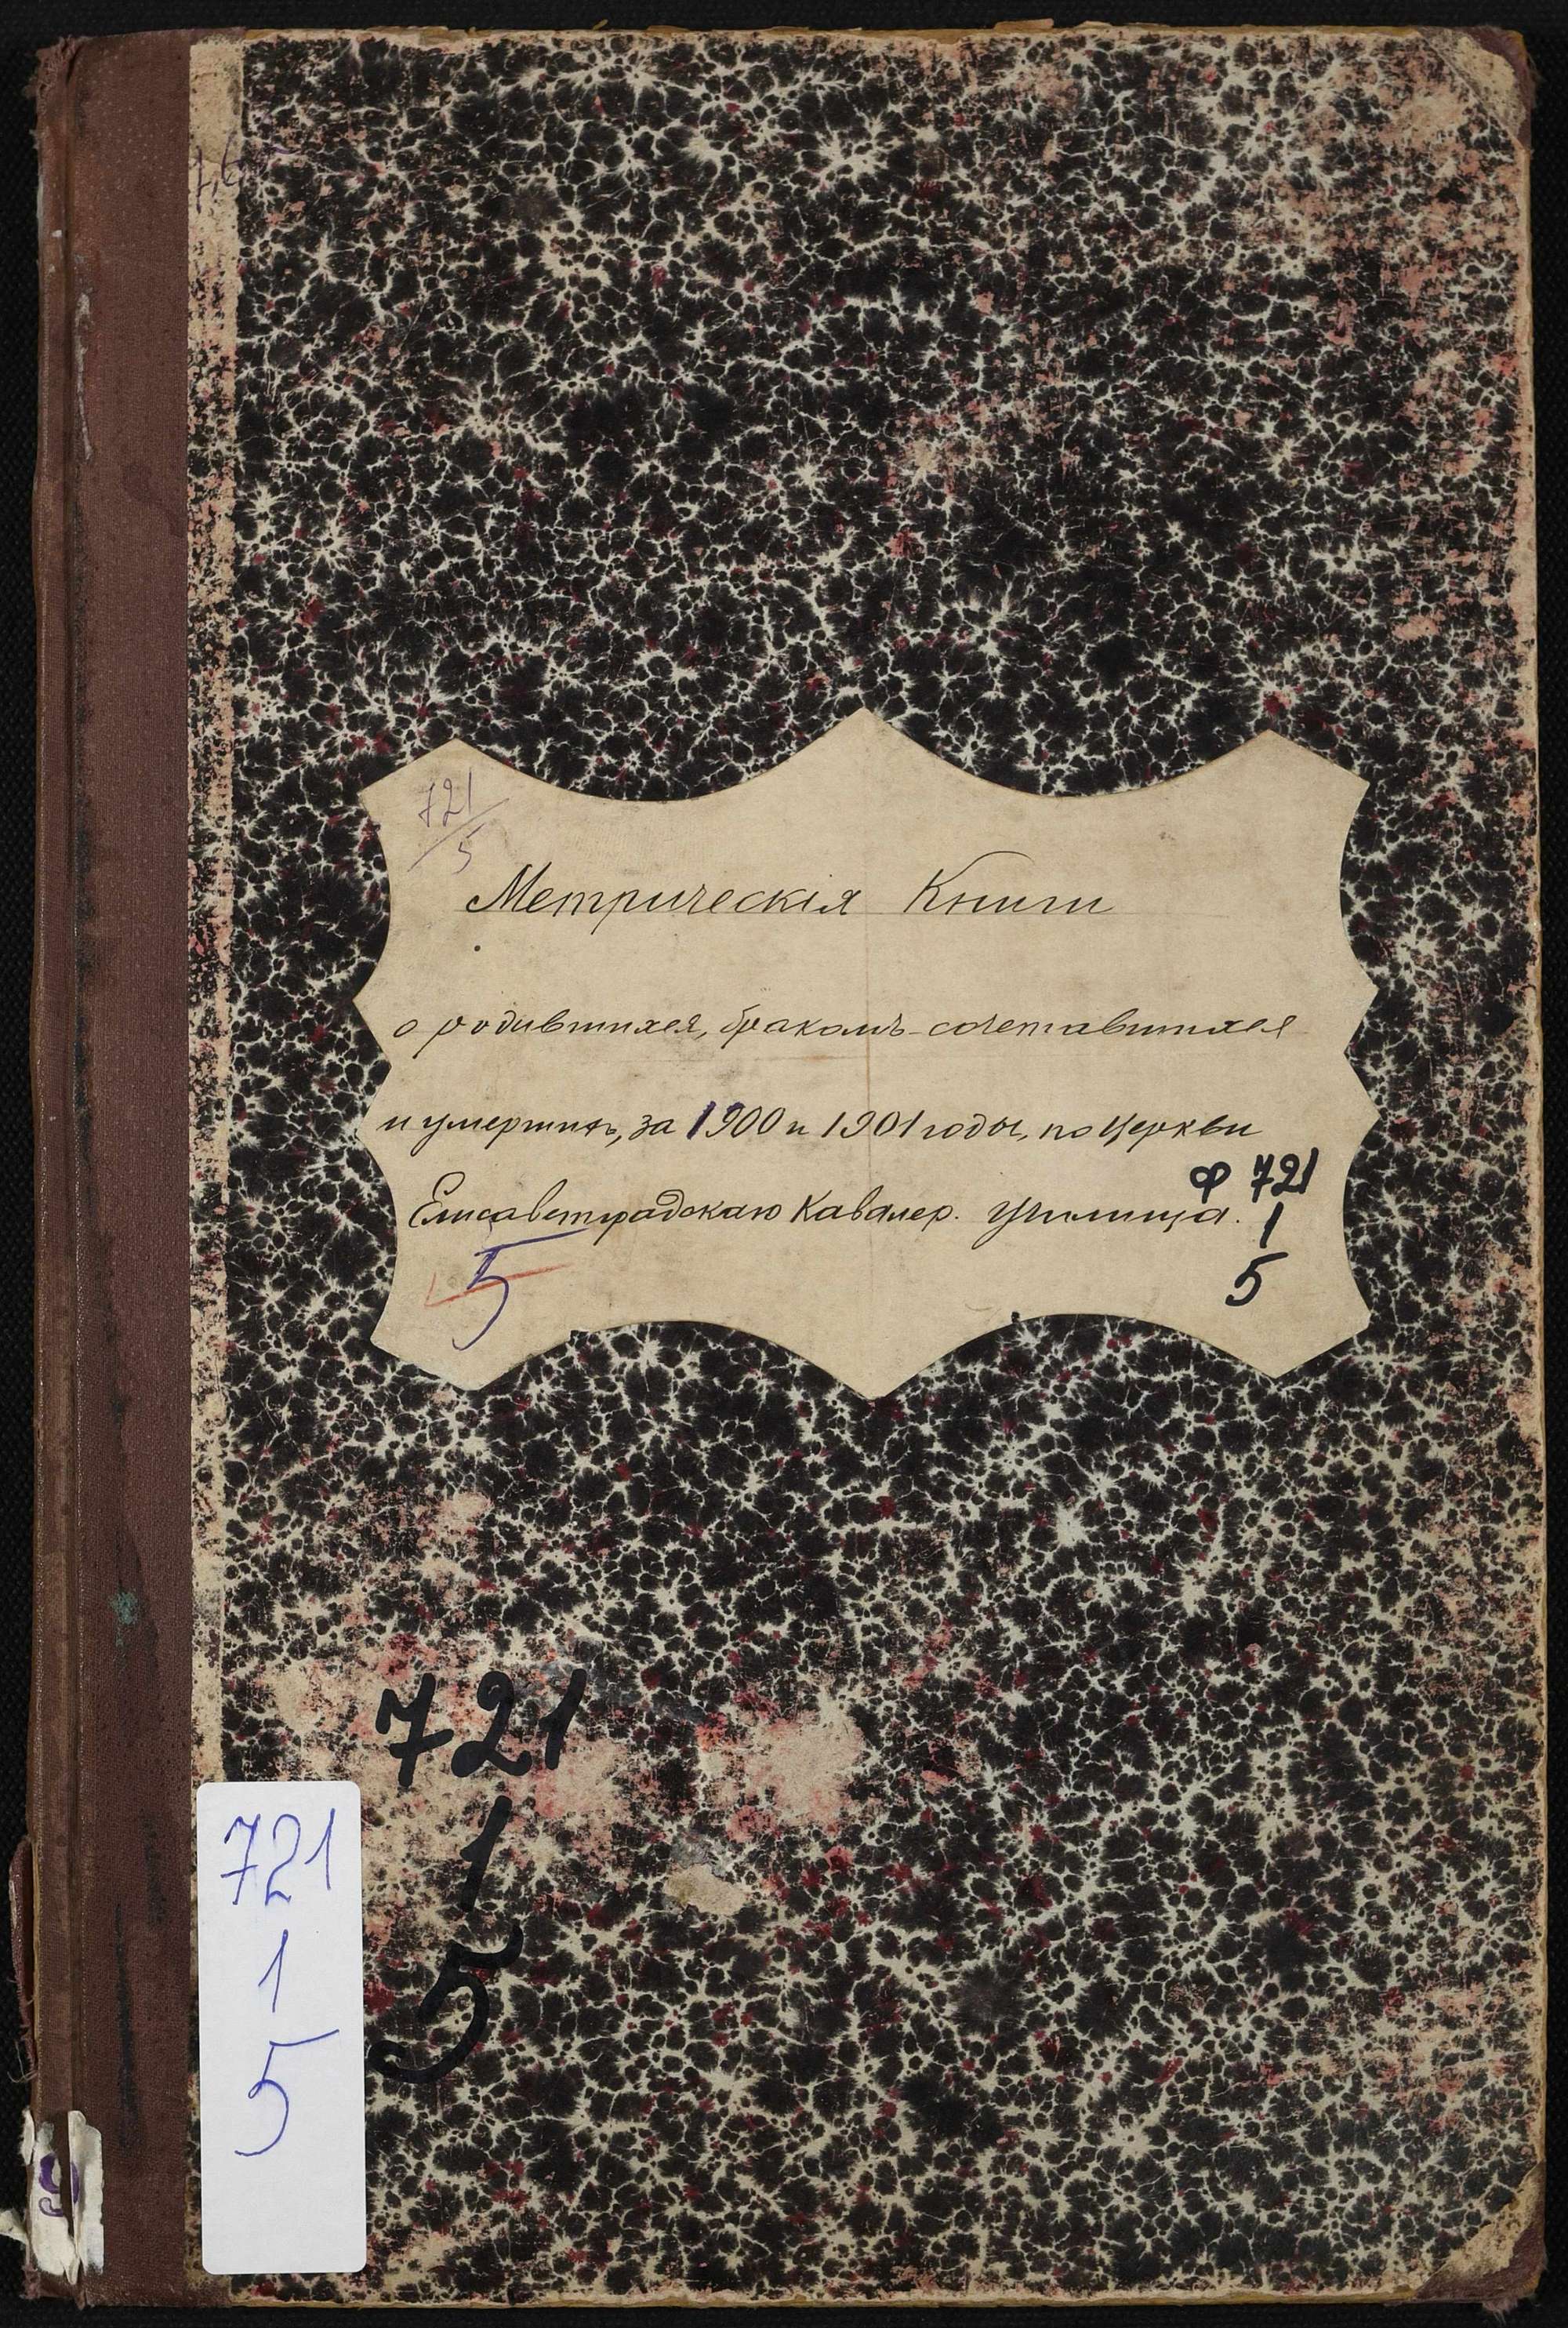 721
5
Метрическія Книги
о родившихся, бракомъ-сочетавшихся
и умершихъ, за 1900 и 1901 годы, по Церкви
Елисаветградскаго Кавалер. Училища.
Ф 721
1
5
5
721
1
5
721
1
5